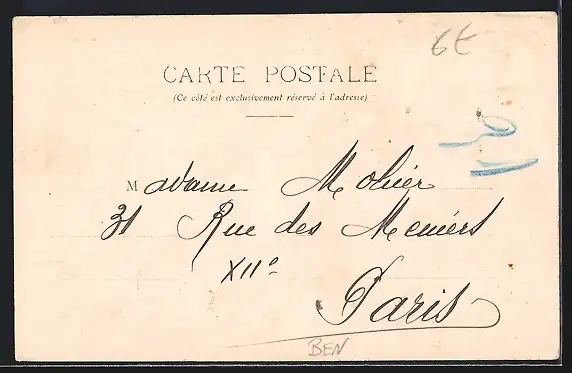 6€
CARTE POSTALE
(Ce côté est exclusivement réservé à l'adresse)
Madame Mohier
31 Rue des Meuniers
XIIe
Paris
BEN